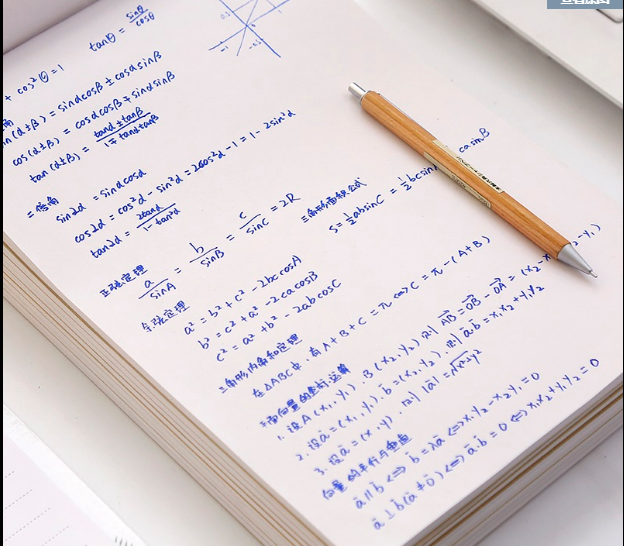 tanθ = sinθ/cosθ
+ cos²θ = 1
(α±β) = sinαcosβ ± cosαsinβ
cos(α±β) = cosαcosβ ∓ sinαsinβ
tan(α±β) = tanα±tanβ/1∓tanαtanβ
二倍角
sin2α = sinαcosα
cos2α = cos²α - sin²α = 2cos²α - 1 = 1 - 2sin²α
tan2α = 2tanα/1-tan²α
三角形面积公式
S = ½absinC = ½bcsin casinB
正弦定理
a/sinA = b/sinB = c/sinC = 2R
余弦定理
a² = b² + c² - 2bccosA
b² = c² + a² - 2cacosB
c² = a² + b² - 2abcosC
三角形内角和定理
在△ABC中,有A+B+C=π⇔C=π-(A+B)
平面向量的坐标运算
1. 设A(x₁,y₁),B(x₂,y₂)则AB=OB-OA=(x₂-x -y₁)
2. 设a=(x₁,y₁),b=(x₂,y₂),则a·b=x₁x₂+y₁y₂
3. 设a=(x,y),则|a|=√x²+y²
向量的平行与垂直
a∥b⇔b=λa⇔x₁y₂-x₂y₁=0
a⊥b(a≠0)⇔a·b=0⇔x₁x₂+y₁y₂=0